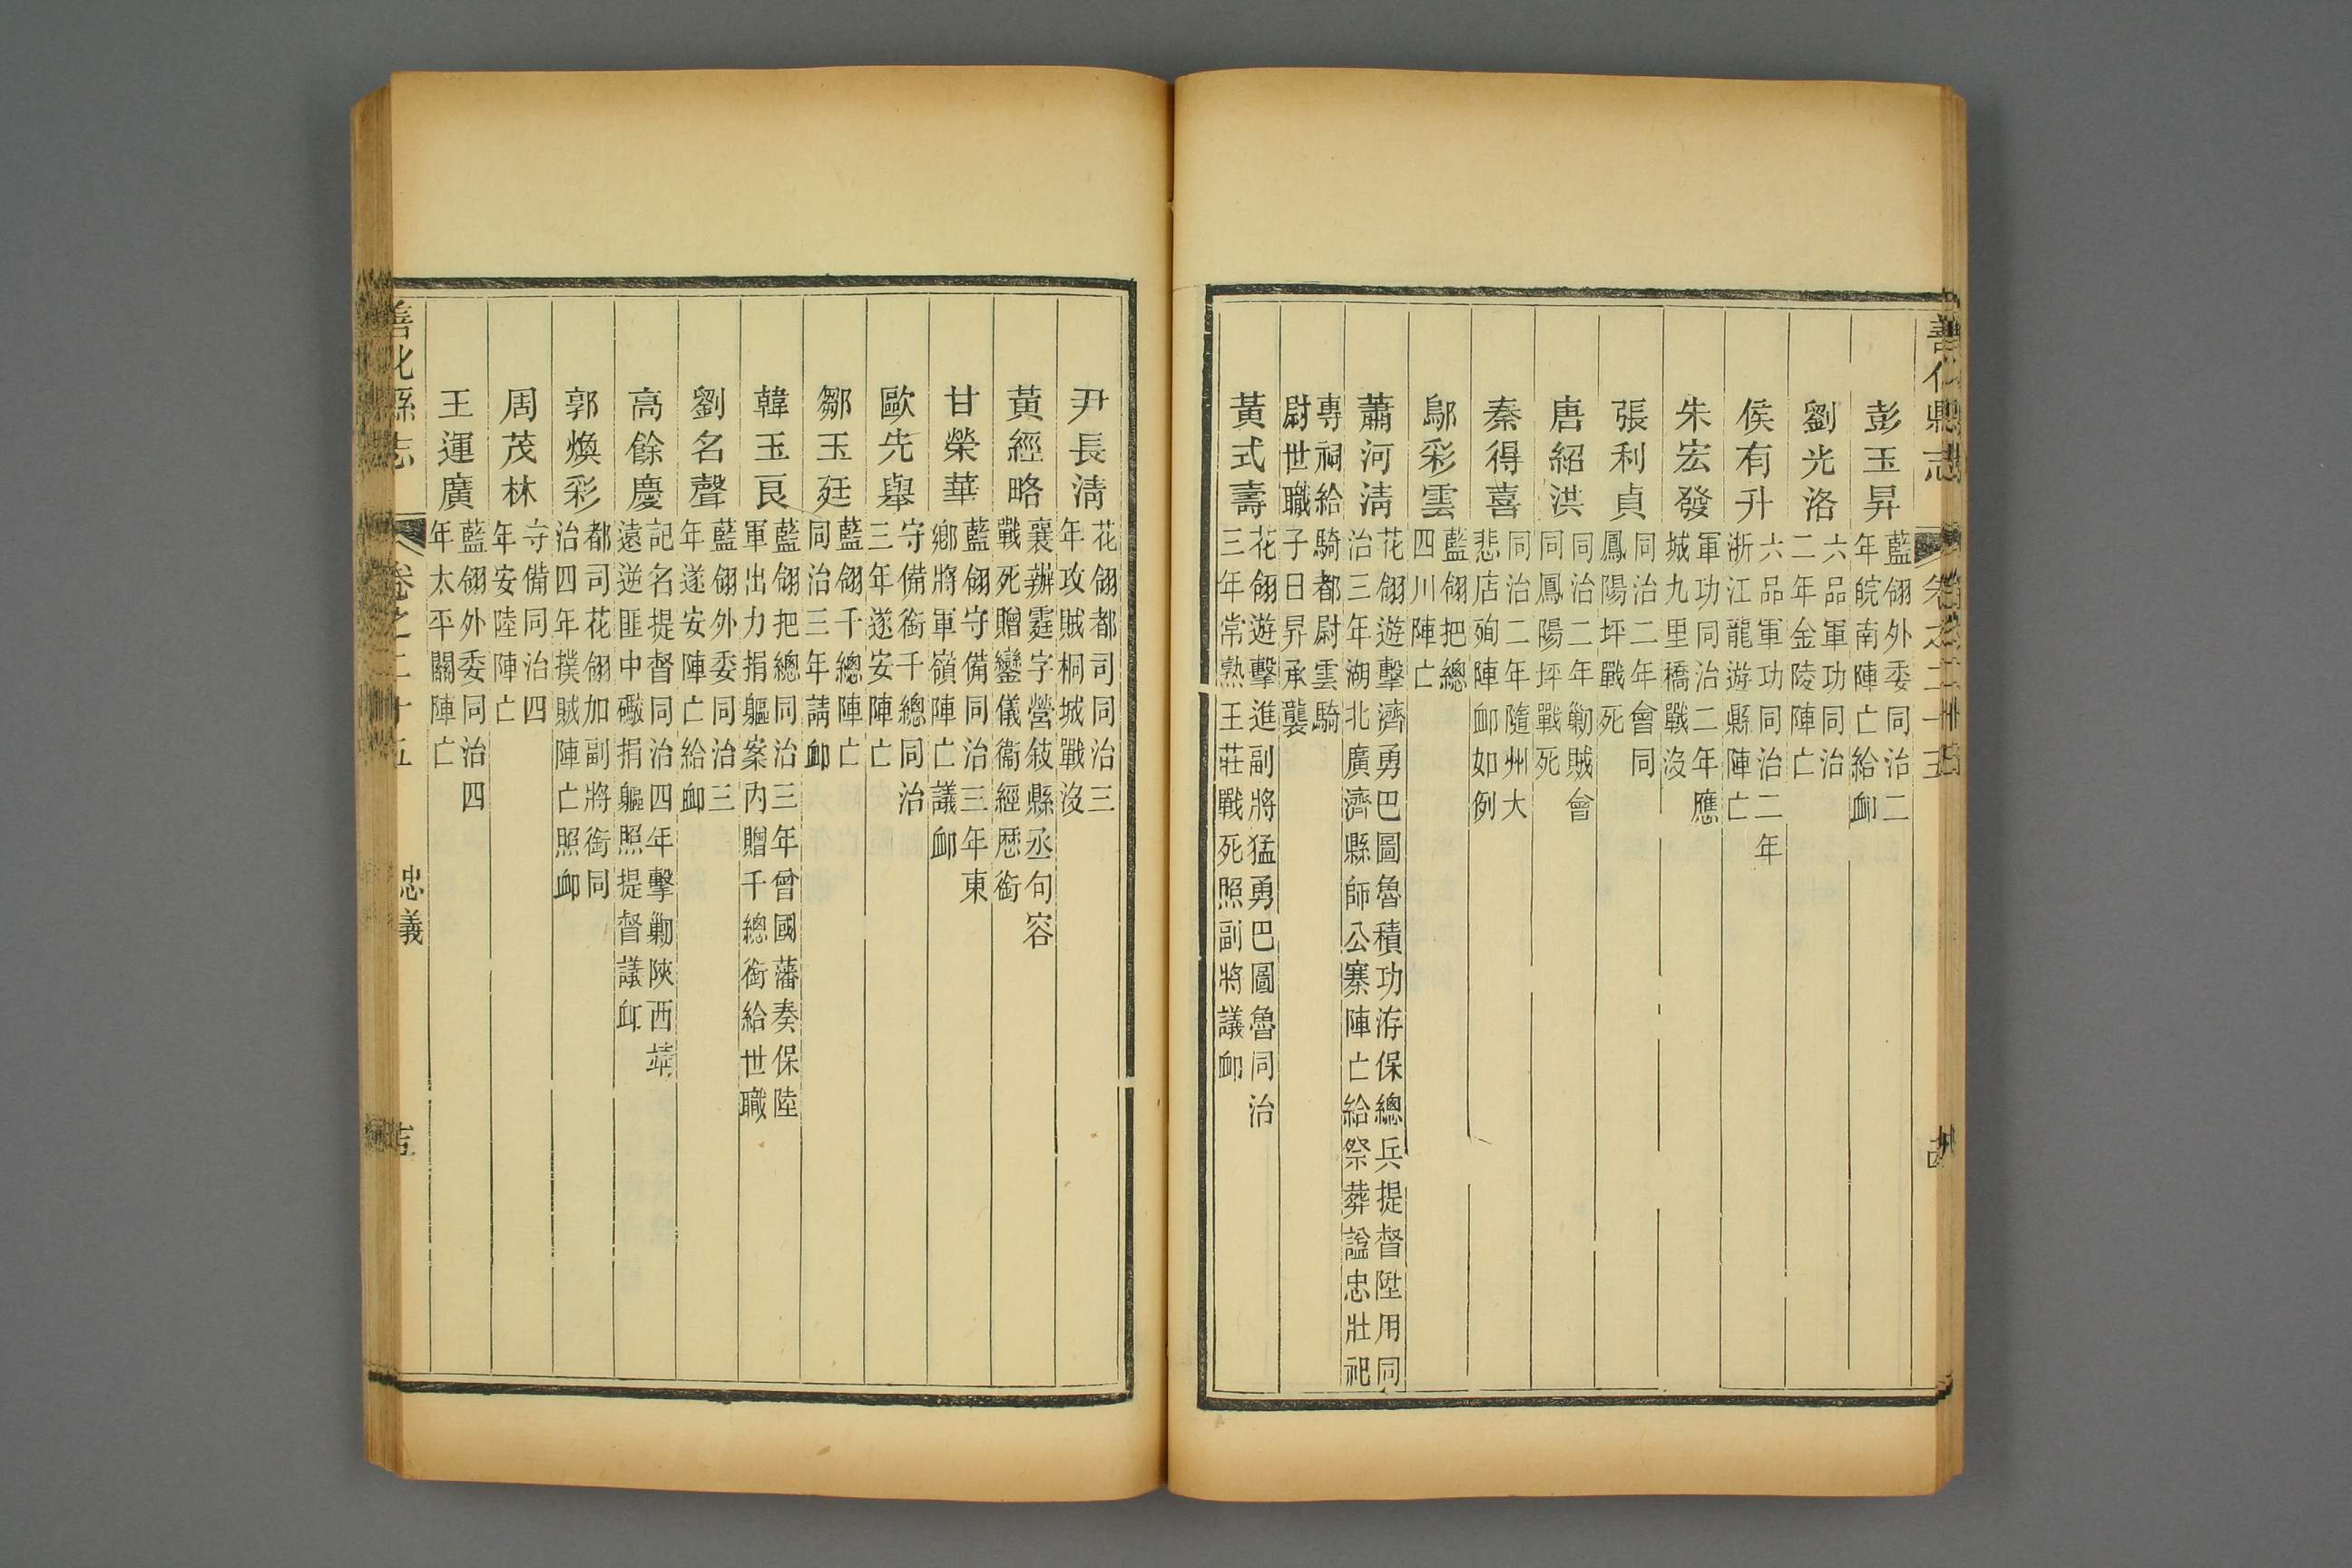 彭玉昇 藍翎外委同治二年皖南陣亡給衈
劉光洛 六品軍功同治二年金陵陣亡
侯有升 六品軍功同治二年浙江龍遊縣陣亡
朱宏發 軍功同治二年應城九里橋戰沒
張利貞 同治二年會同鳳陽坪戰死
唐紹洪 同治二年勦賊會同鳳陽坪戰死
秦得喜 同治二年隨州大悲店殉陣衈如例
鄔彩雲 藍翎把總四川陣亡
蕭河清 花翎遊擊濟勇巴圖魯積功洊保總兵提督陞用同治三年湖北廣濟縣師公寨陣亡給祭葬諡忠壯祀
專祠給騎都尉雲騎尉世職子日昇承襲
黃式壽 花翎遊擊進副將猛勇巴圖魯同治三年常熟王莊戰死照副將議衈
尹長清 花翎都司同治三年攻賊桐城戰沒
黃經略 襄辦霆字營敍縣丞句容戰死贈鑾儀衞經歷銜
甘榮華 藍翎守備同治三年東鄉將軍嶺陣亡議衈
歐先舉 守備銜千總同治三年遂安陣亡
鄒玉廷 藍翎千總陣亡同治三年請衈
韓玉良 藍翎把總同治三年曾國藩奏保陸軍出力捐軀案內贈千總銜給世職
劉名聲 藍翎外委同治三年遂安陣亡給衈
高餘慶 記名提督同治四年擊勦陝西靖遠逆匪中礮捐軀照提督議衈
郭煥彩 都司花翎加副將銜同治四年撲賊陣亡照衈
周茂林 守備同治四年安陸陣亡
王運廣 藍翎外委同治四年太平關陣亡
善化縣志 卷之二十五 忠義